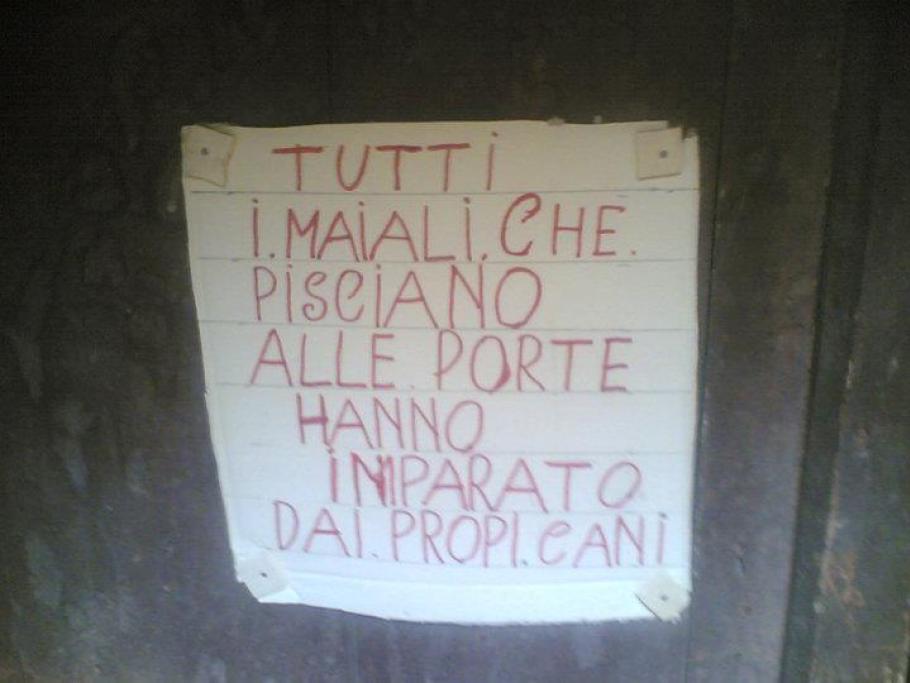 TUTTi
i.MAiALi.CHE.
PiSCiANO
ALLE.PORTE
HANNO
iMPARATO
DAI.PROPI.CANi